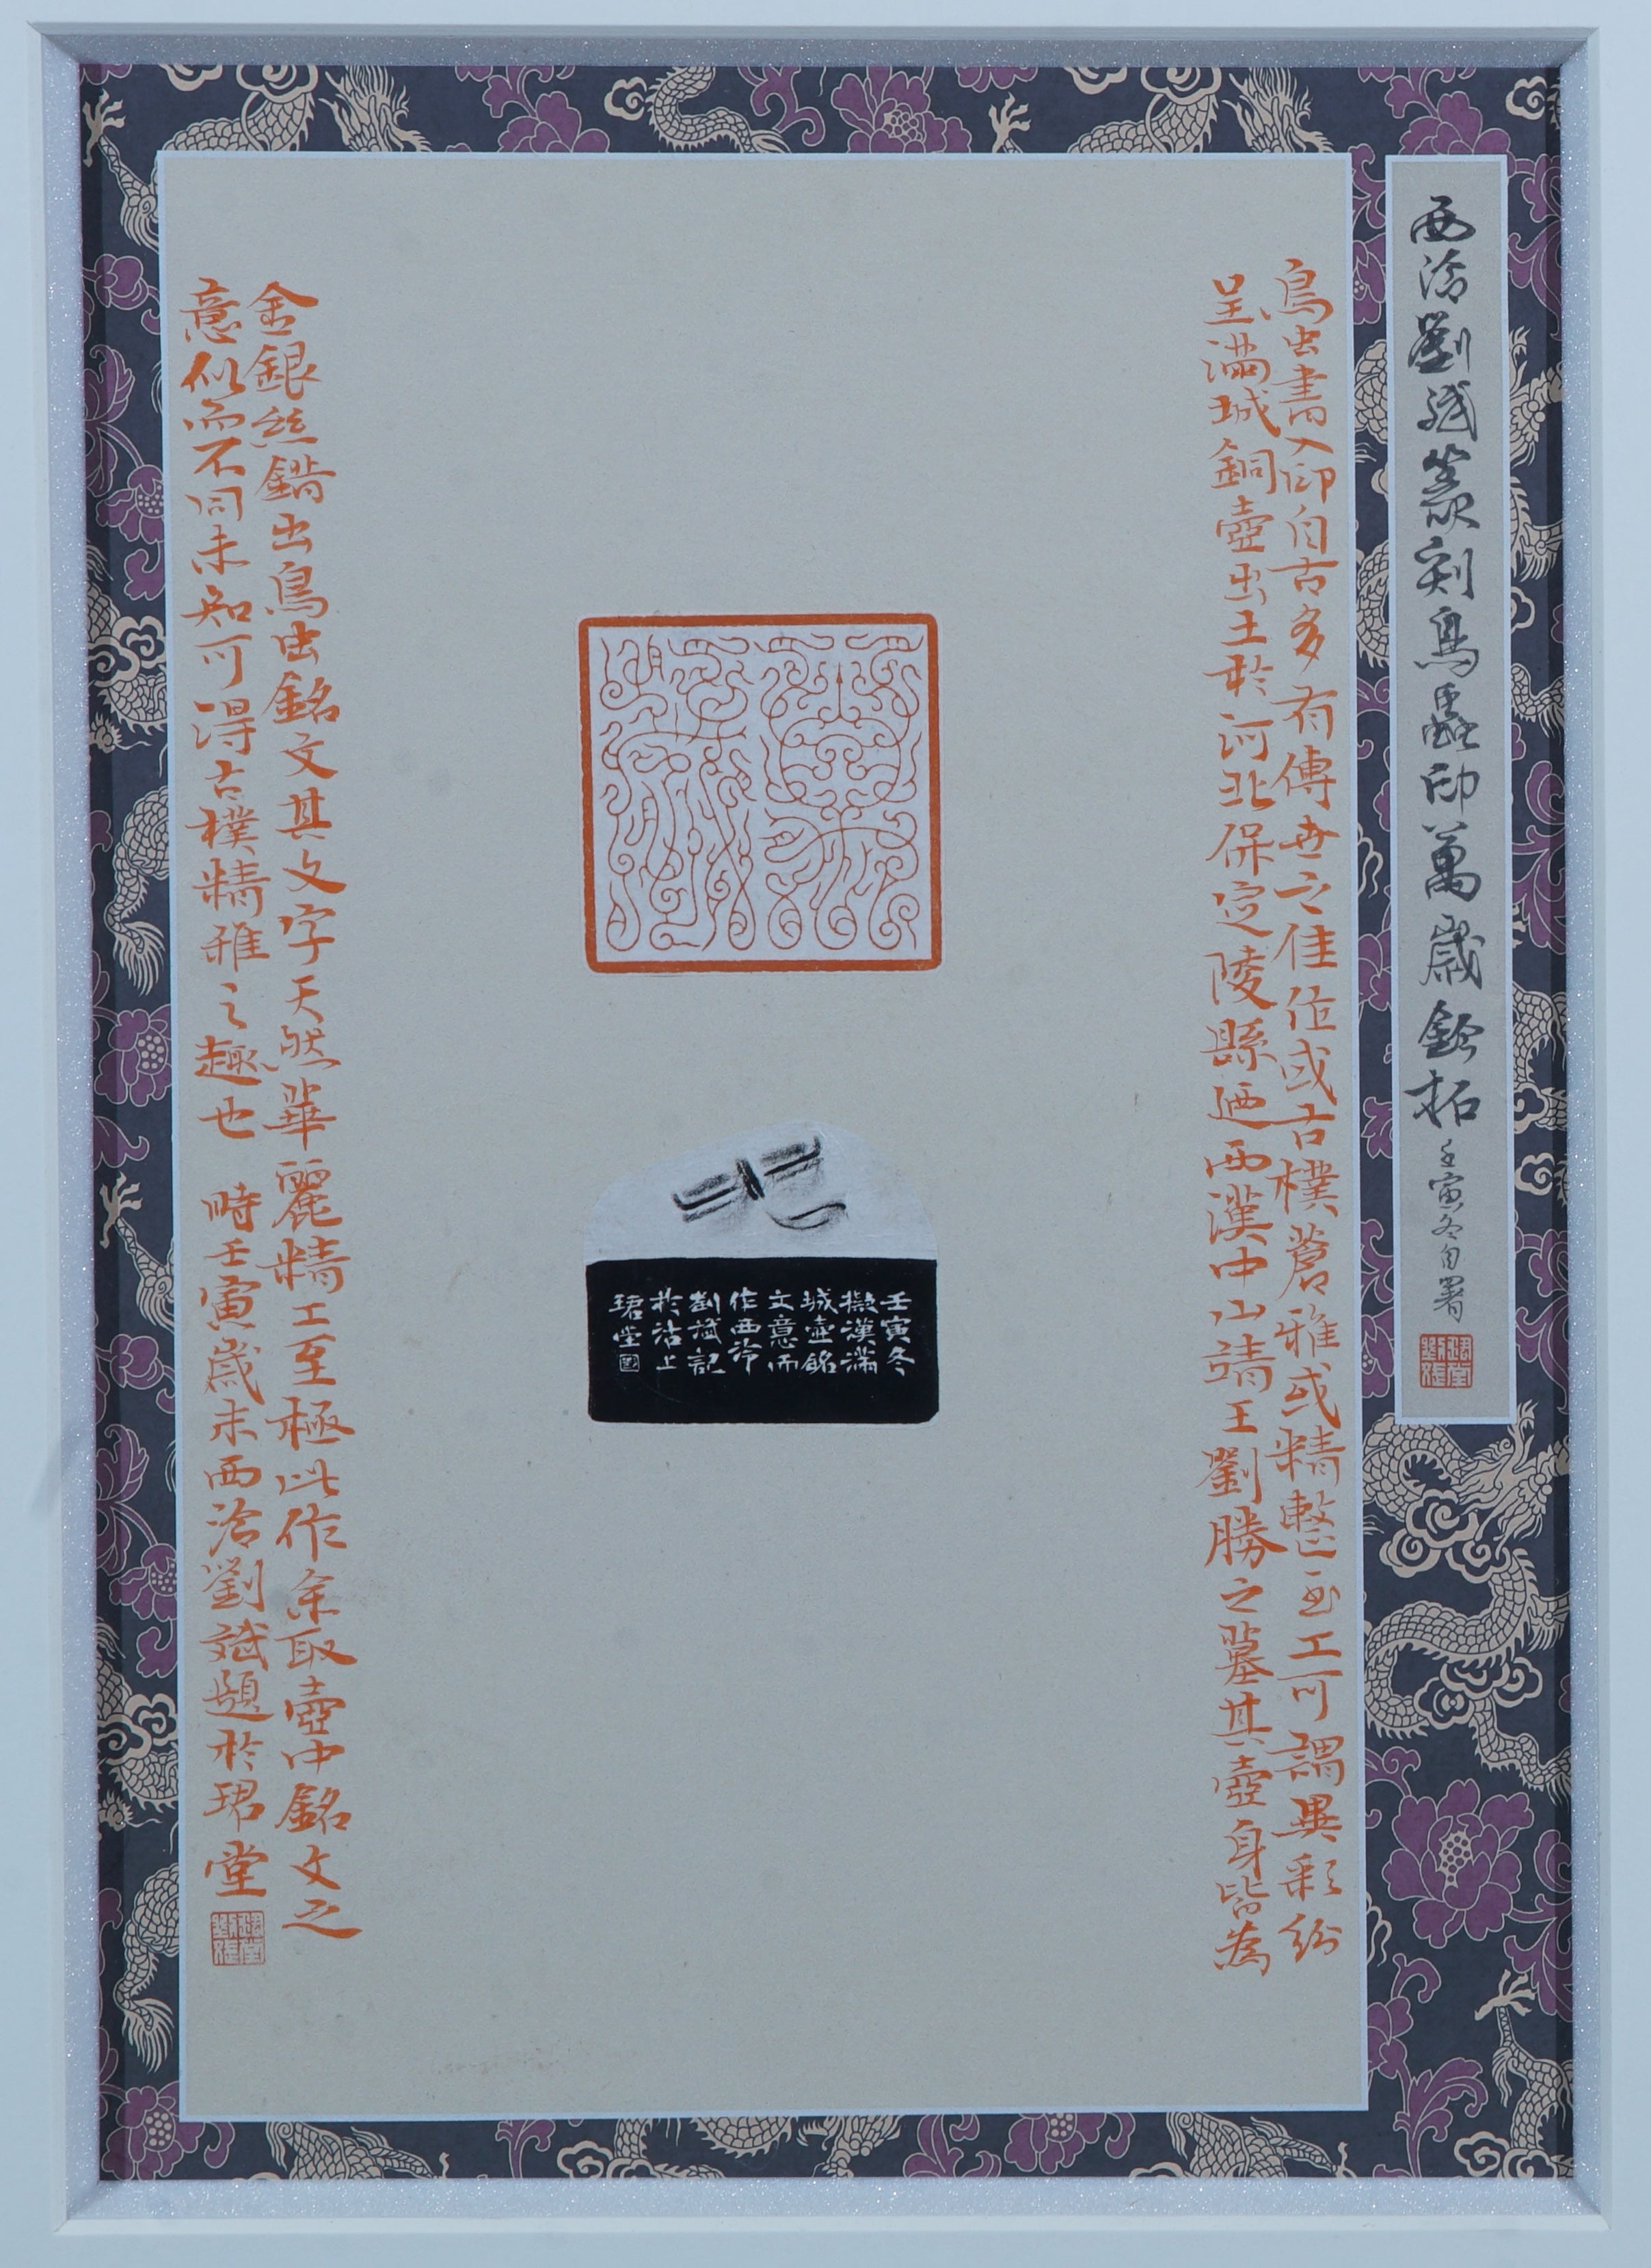 西泠劉斌篆刻鳥蟲印萬歲鈐拓
壬寅冬自署
鳥虫書入印自古多有傳世之佳作或古樸蒼雅或精整巧工可謂異彩紛
呈滿城銅壺出土於河北保定陵縣西漢中山靖王劉勝之墓其壺身皆為
金銀絲錯出鳥虫銘文其文字天然華麗精工至極此作余取壺中銘文之
意似而不同未知可得古樸精雅之趣也 時壬寅歲末西泠劉斌題於珺堂
萬歲
壬寅冬
擬漢滿
城壺銘
文意而
作西泠
劉斌記
於沽上
珺堂